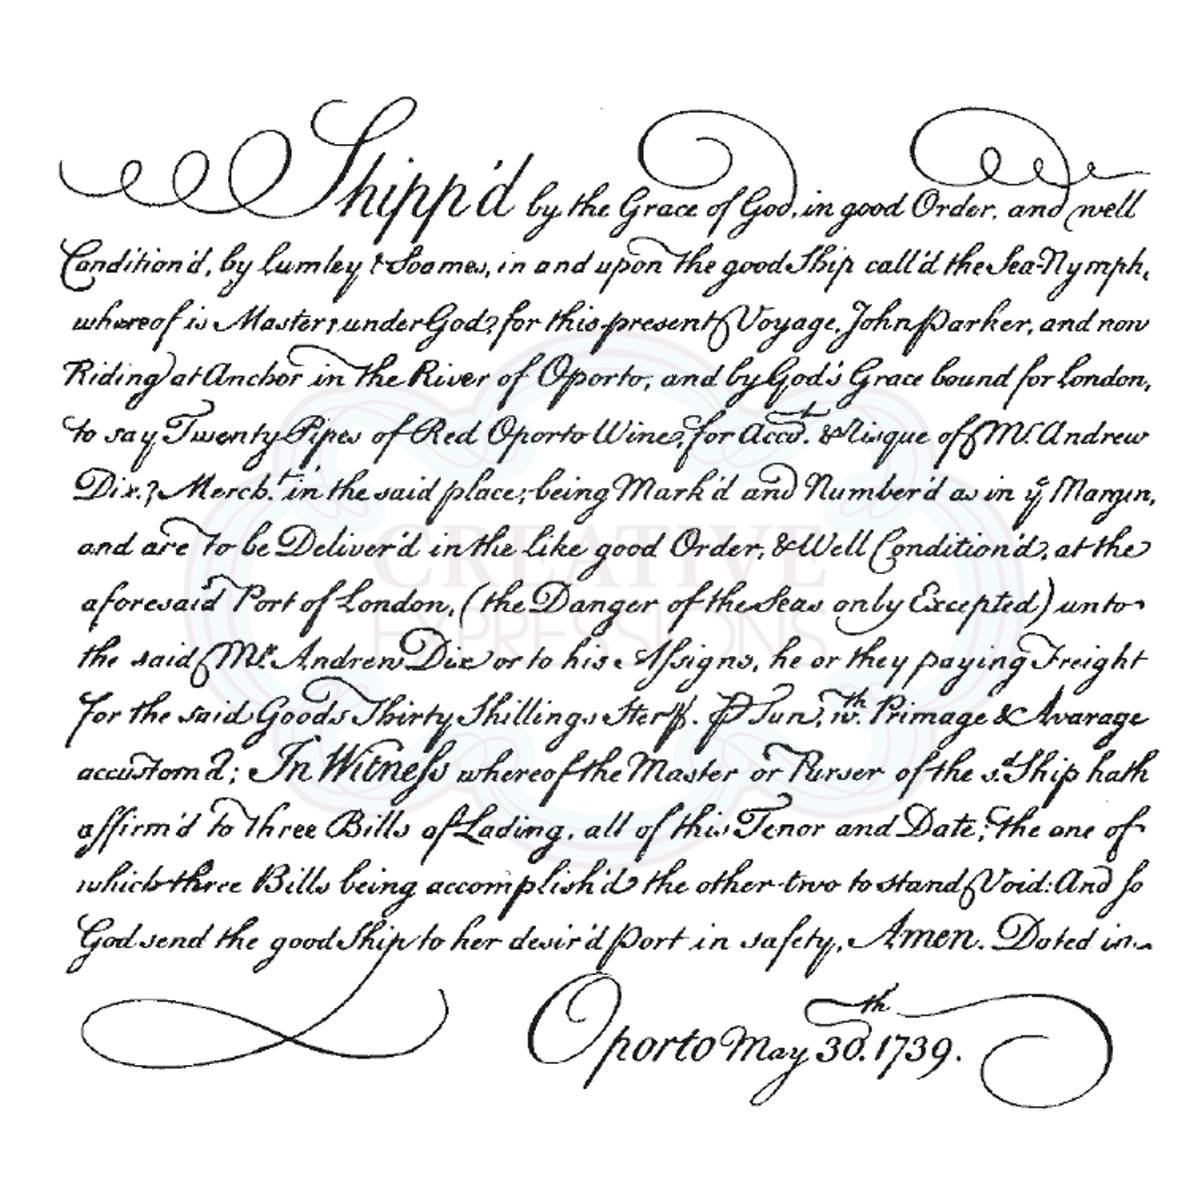 Shipp'd by the Grace of God, in good Order, and well
Condition'd, by Lumley & Soames, in and upon the good Ship call'd the Sea-Nymph,
whereof is Master, under God, for this present Voyage, John Parker, and now
Riding at Anchor in the River of Oporto, and by God's Grace bound for London,
to say Twenty Pipes of Red Oporto Wine, for Acco.t & Risque of Mr. Andrew
Dix, Merch.t in the said place; being Mark'd and Number'd as in ye Margin,
and are to be Deliver'd in the like good Order, & Well Condition'd, at the
aforesaid Port of London, (the Danger of the Seas only Excepted) unto
the said Mr. Andrew Dix or to his Assigns, he or they paying Freight
for the said Goods Thirty Shillings Ster. Tun, wth. Primage & Avarage
accustom'd; In Witness whereof the Master or Purser of the sd. Ship hath
affirm'd to three Bills of Lading, all of this Tenor and Date; the one of
which three Bills being accomplish'd the other two to stand Void: And so
God send the good Ship to her desir'd Port in safety, Amen. Dated in
Oporto May 30.th 1739.
CREATIVE
EXPRESSIONS